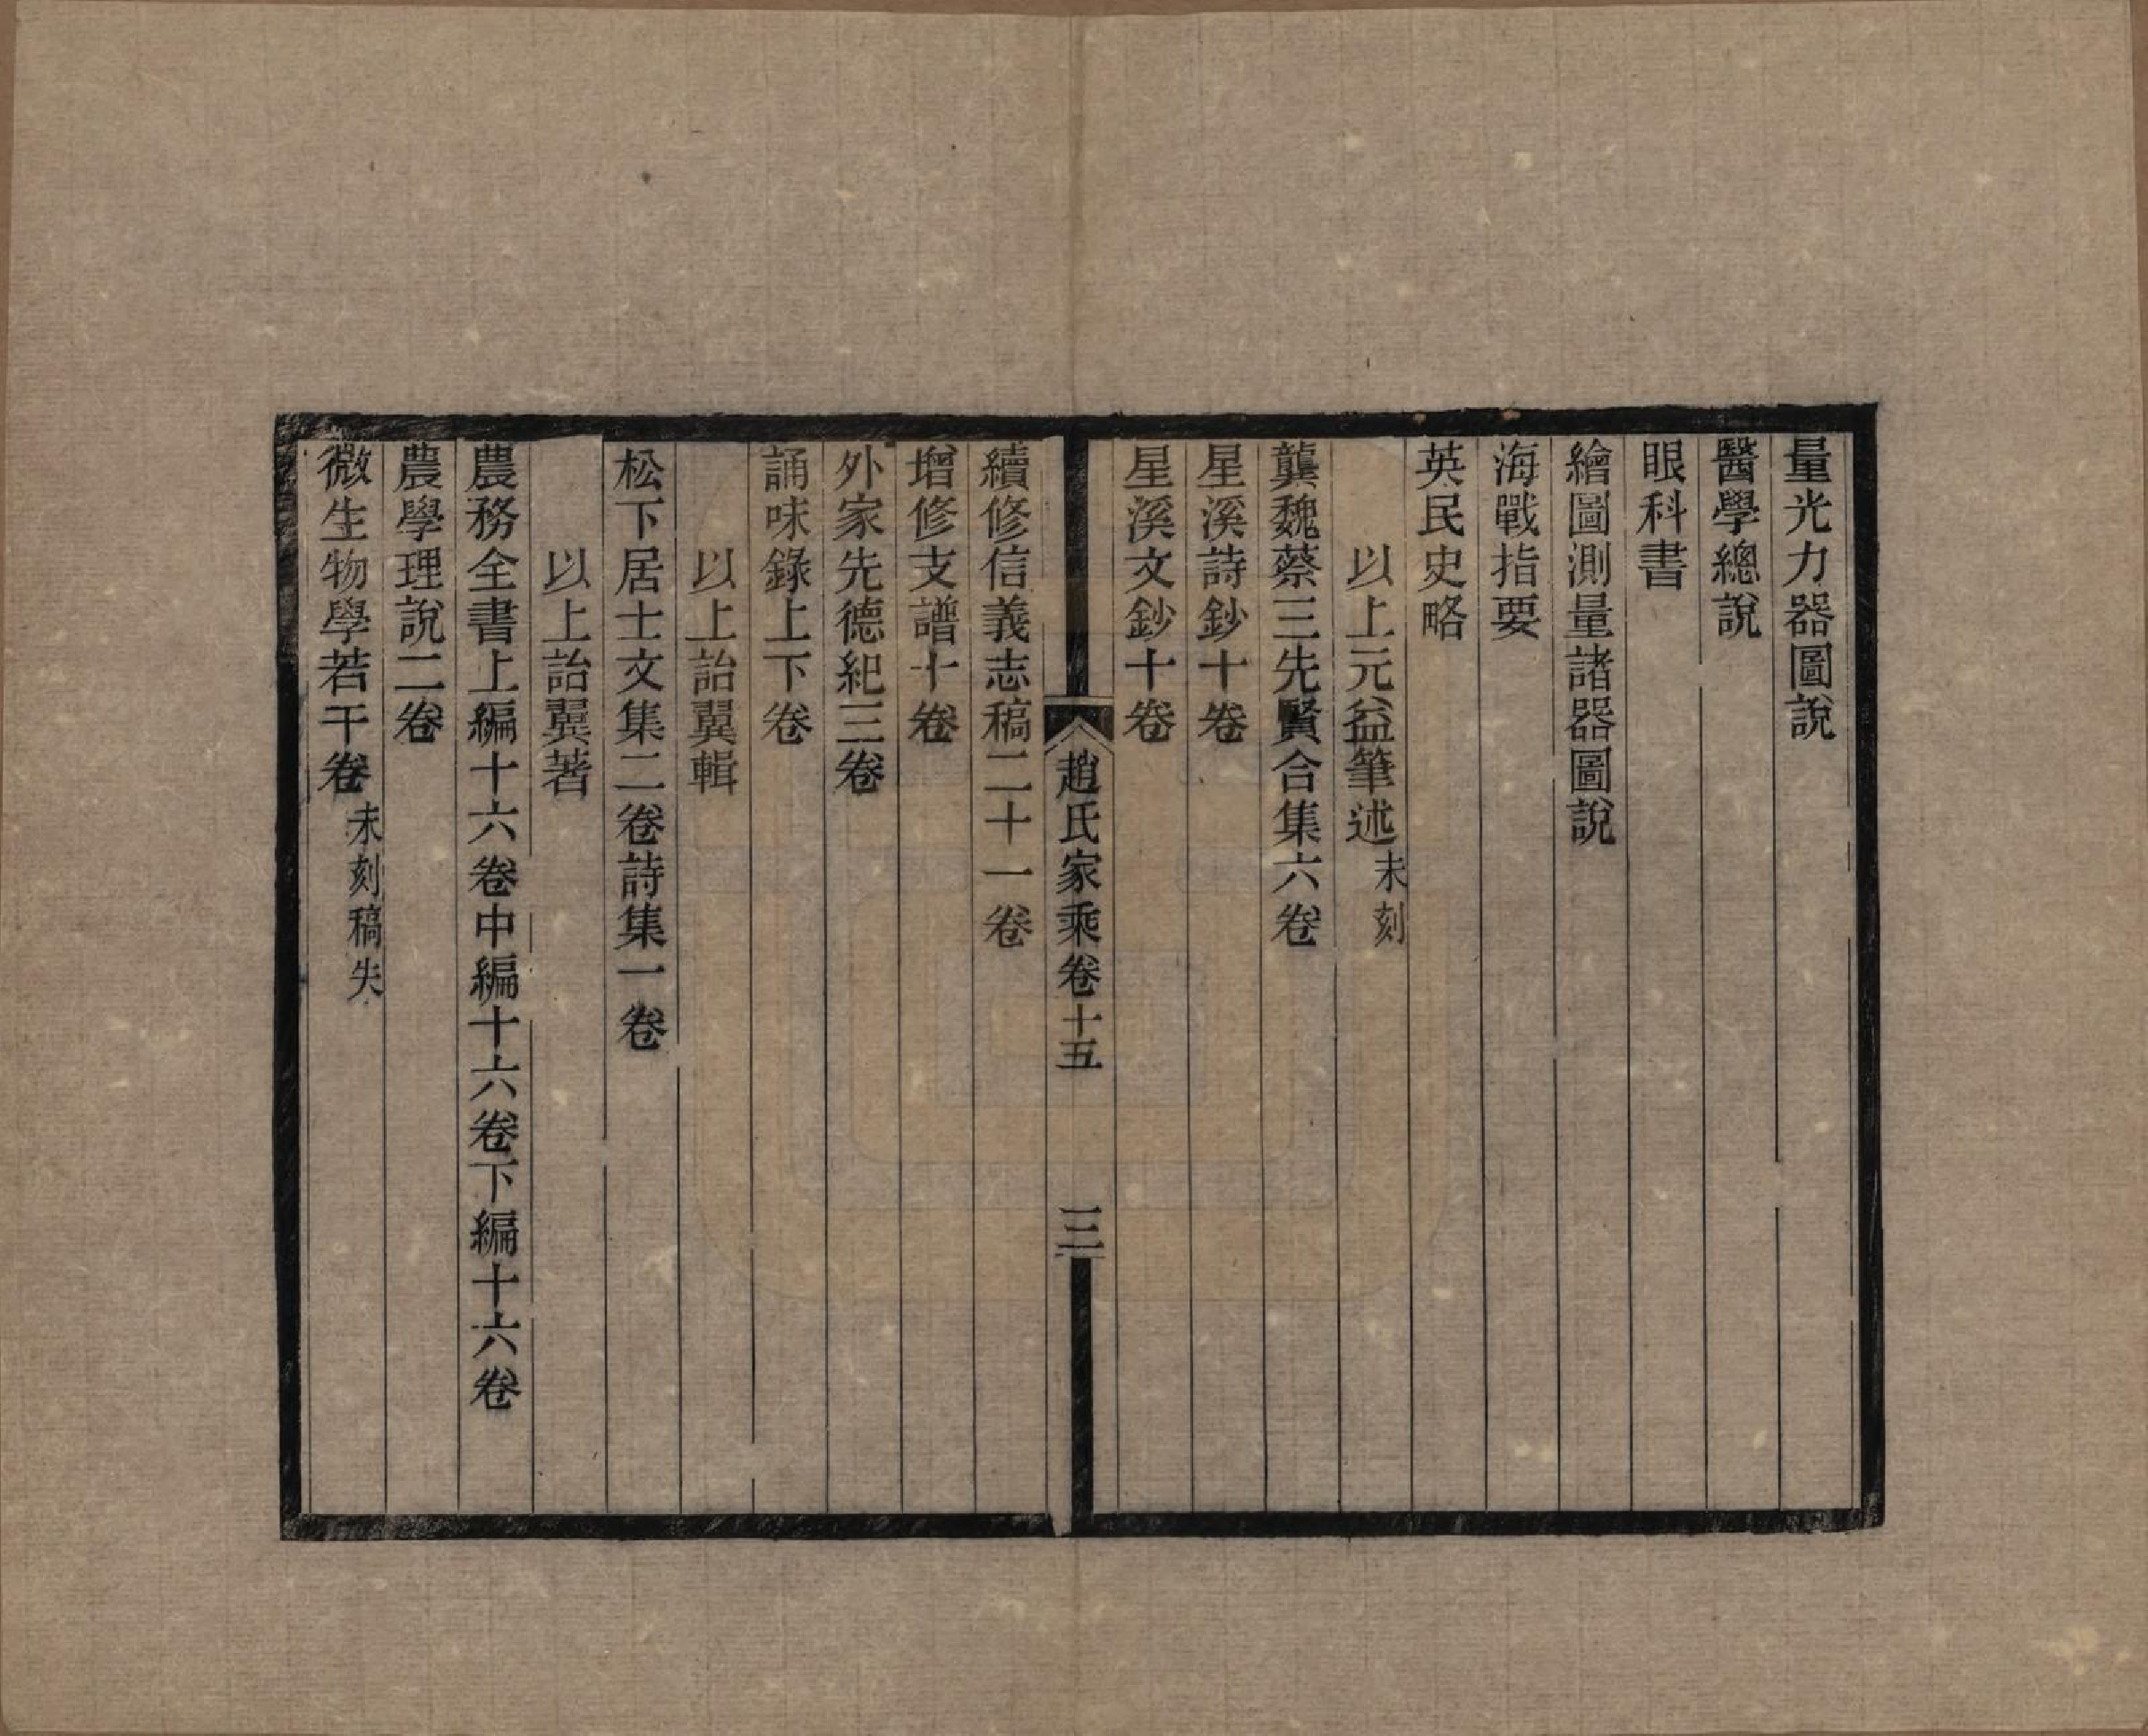 量光力器圖說
醫學總說
眼科書
繪圖測量諸器圖說
海戰指要
英民史略
以上元益筆述未刻
龔魏蔡三先賢合集六卷
星溪詩鈔十卷
星溪文鈔十卷
趙氏家乘卷十五 三
續修信義志稿二十一卷
增修支譜十卷
外家先德紀三卷
誦味錄上下卷
以上詒翼輯
松下居士文集二卷詩集一卷
以上詒翼著
農務全書上編十六卷中編十六卷下編十六卷
農學理說二卷
微生物學若干卷未刻稿失